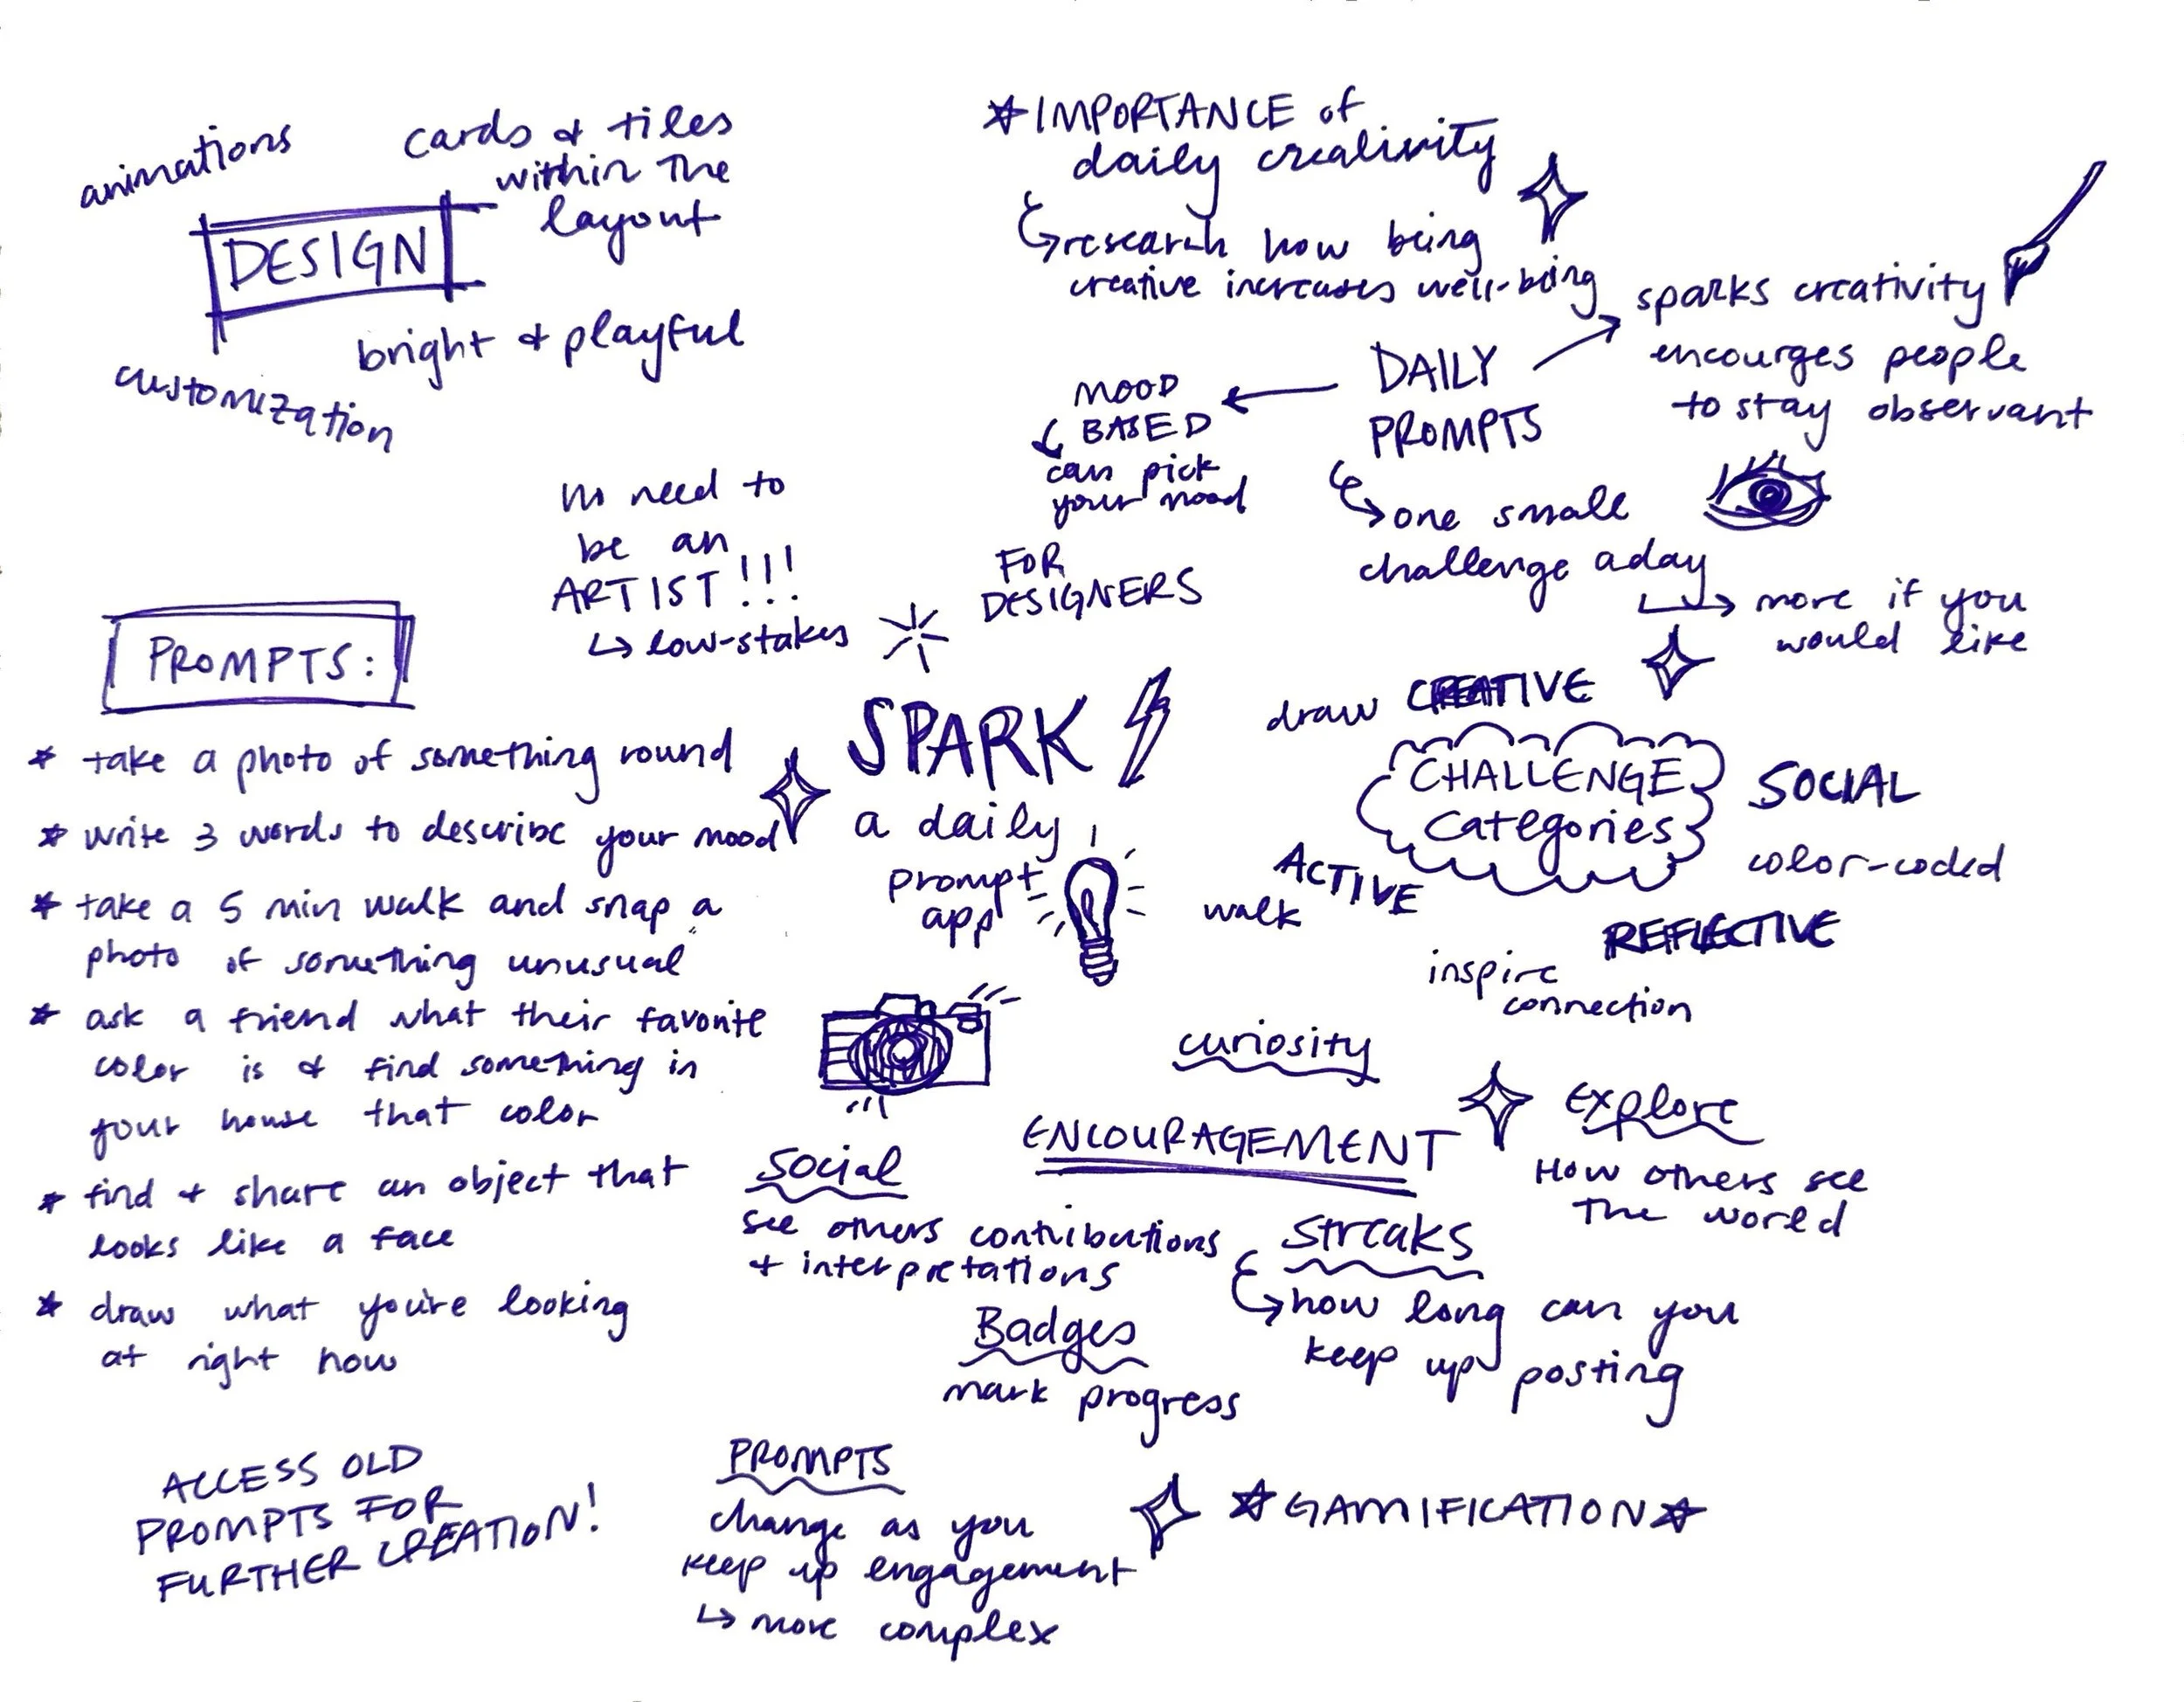 animations
cards & tiles
within the
layout
DESIGN
bright & playful
customization
☆IMPORTANCE of
daily creativity
↳research how being
creative increases well-being
DAILY
PROMPTS
→ sparks creativity
encourges people
to stay observant
← MOOD
BASED
↳ can pick
your mood
↳one small
challenge a day
↳ more if you
would like
no need to
be an
ARTIST!!!
↳ low-stakes
FOR
DESIGNERS
SPARK
a daily
prompt
app
PROMPTS:
* take a photo of something round
* write 3 words to describe your mood
* take a 5 min walk and snap a
photo of something unusual
* ask a friend what their favorite
color is & find something in
your house that color
* find & share an object that
looks like a face
* draw what you're looking
at right now
draw CREATIVE
CHALLENGE
categories
SOCIAL
color-coded
ACTIVE
walk
REFLECTIVE
inspire
connection
curiosity
ENCOURAGEMENT
Explore
How others see
the world
Social
see others contributions
+ interpretations
Streaks
↳how long can you
keep up posting
Badges
mark progress
ACCESS OLD
PROMPTS FOR
FURTHER CREATION!
PROMPTS
change as you
keep up engagement
↳ more complex
☆GAMIFICATION☆